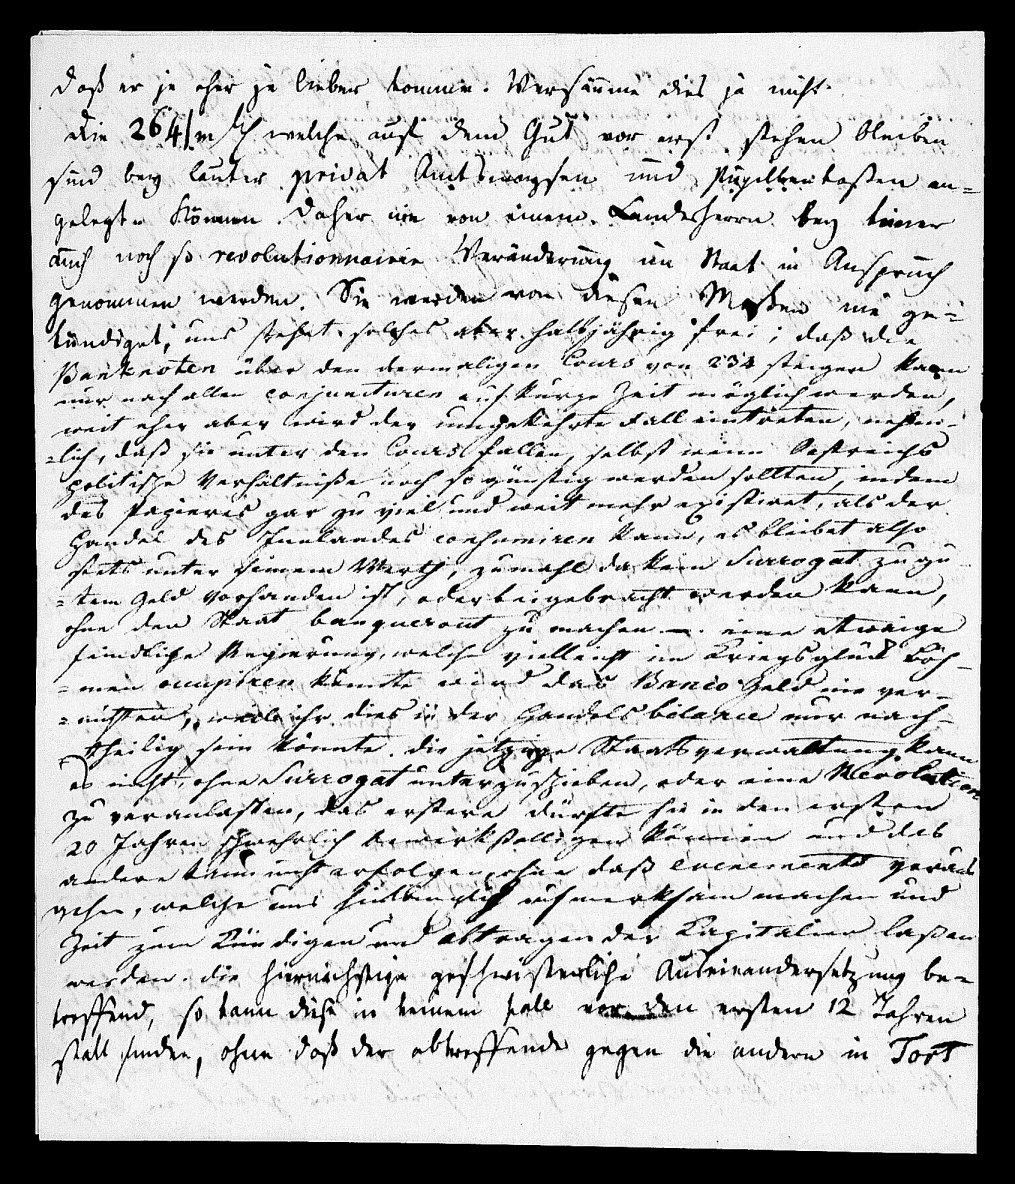 daß er je eher je lieber komme. Versäume dies ja nicht.
Die 264/m welche auf dem Gut vor erst stehen bleiben
sind bey lauter privat Amtswaysen und Pupillenkaßen an-
gelegt. Können daher nie von einem Landesherrn bey einer
auch noch so revolutionnairen Veränderung im Staat in Anspruch
genommen werden. Sie werden von diesen Maßen nie ge-
kündiget, uns stehet solches aber halbjährig frei; daß die
Banknoten über den dermaligen Cours von 234 steigen kann
nur nach allen conjuncturen auf kurze Zeit möglich werden,
weit eher aber wird der umgekehrte Fall eintreten, nehm-
=lich, daß sie unter den Cours fallen, selbst wenn Oestreichs
politische Verhältniße noch so günstig werden sollten, indem
des Papieres gar zu viel und weit mehr existiret, als der
Handel des Innlandes consumiren kann, es bleibet also
stets unter seinem Werth, zumahl da kein Surrogat zu gu-
=tem Geld vorhanden ist, oder beigebracht werden kann,
ohne den Staat banqueront zu machen —. eine etwaige
feindliche Regierung, welche vielleicht im Kriegsglück Böh-
=men occupiren könnte wird das Banco Geld nie ver-
=nichten, weil ihr dies in der Handelsbilance nur nach-
theilig sein könnte. die jetzige Staatsverwaltung kann
es nicht, ohne Surrogat unterzuschieben, oder eine Revolution
zu veranlaßen, das erstere dürfte sie in den ersten
20 Jahren schwehrlich bewerkstelligen können und das
andere kann nicht erfolgen, ohne daß evenements voraus
gehen, welche uns hinlänglich aufmerksam machen und
Zeit zum Kündigen und Abtragen der Kapitalien laßen
werden. die hiernächstige geschwisterliche Auseinandersetzung be-
treffend, so kann diese in keinem Fall vor den ersten 12 Jahren
statt finden, ohne daß der abtreffende gegen die andern in Tort